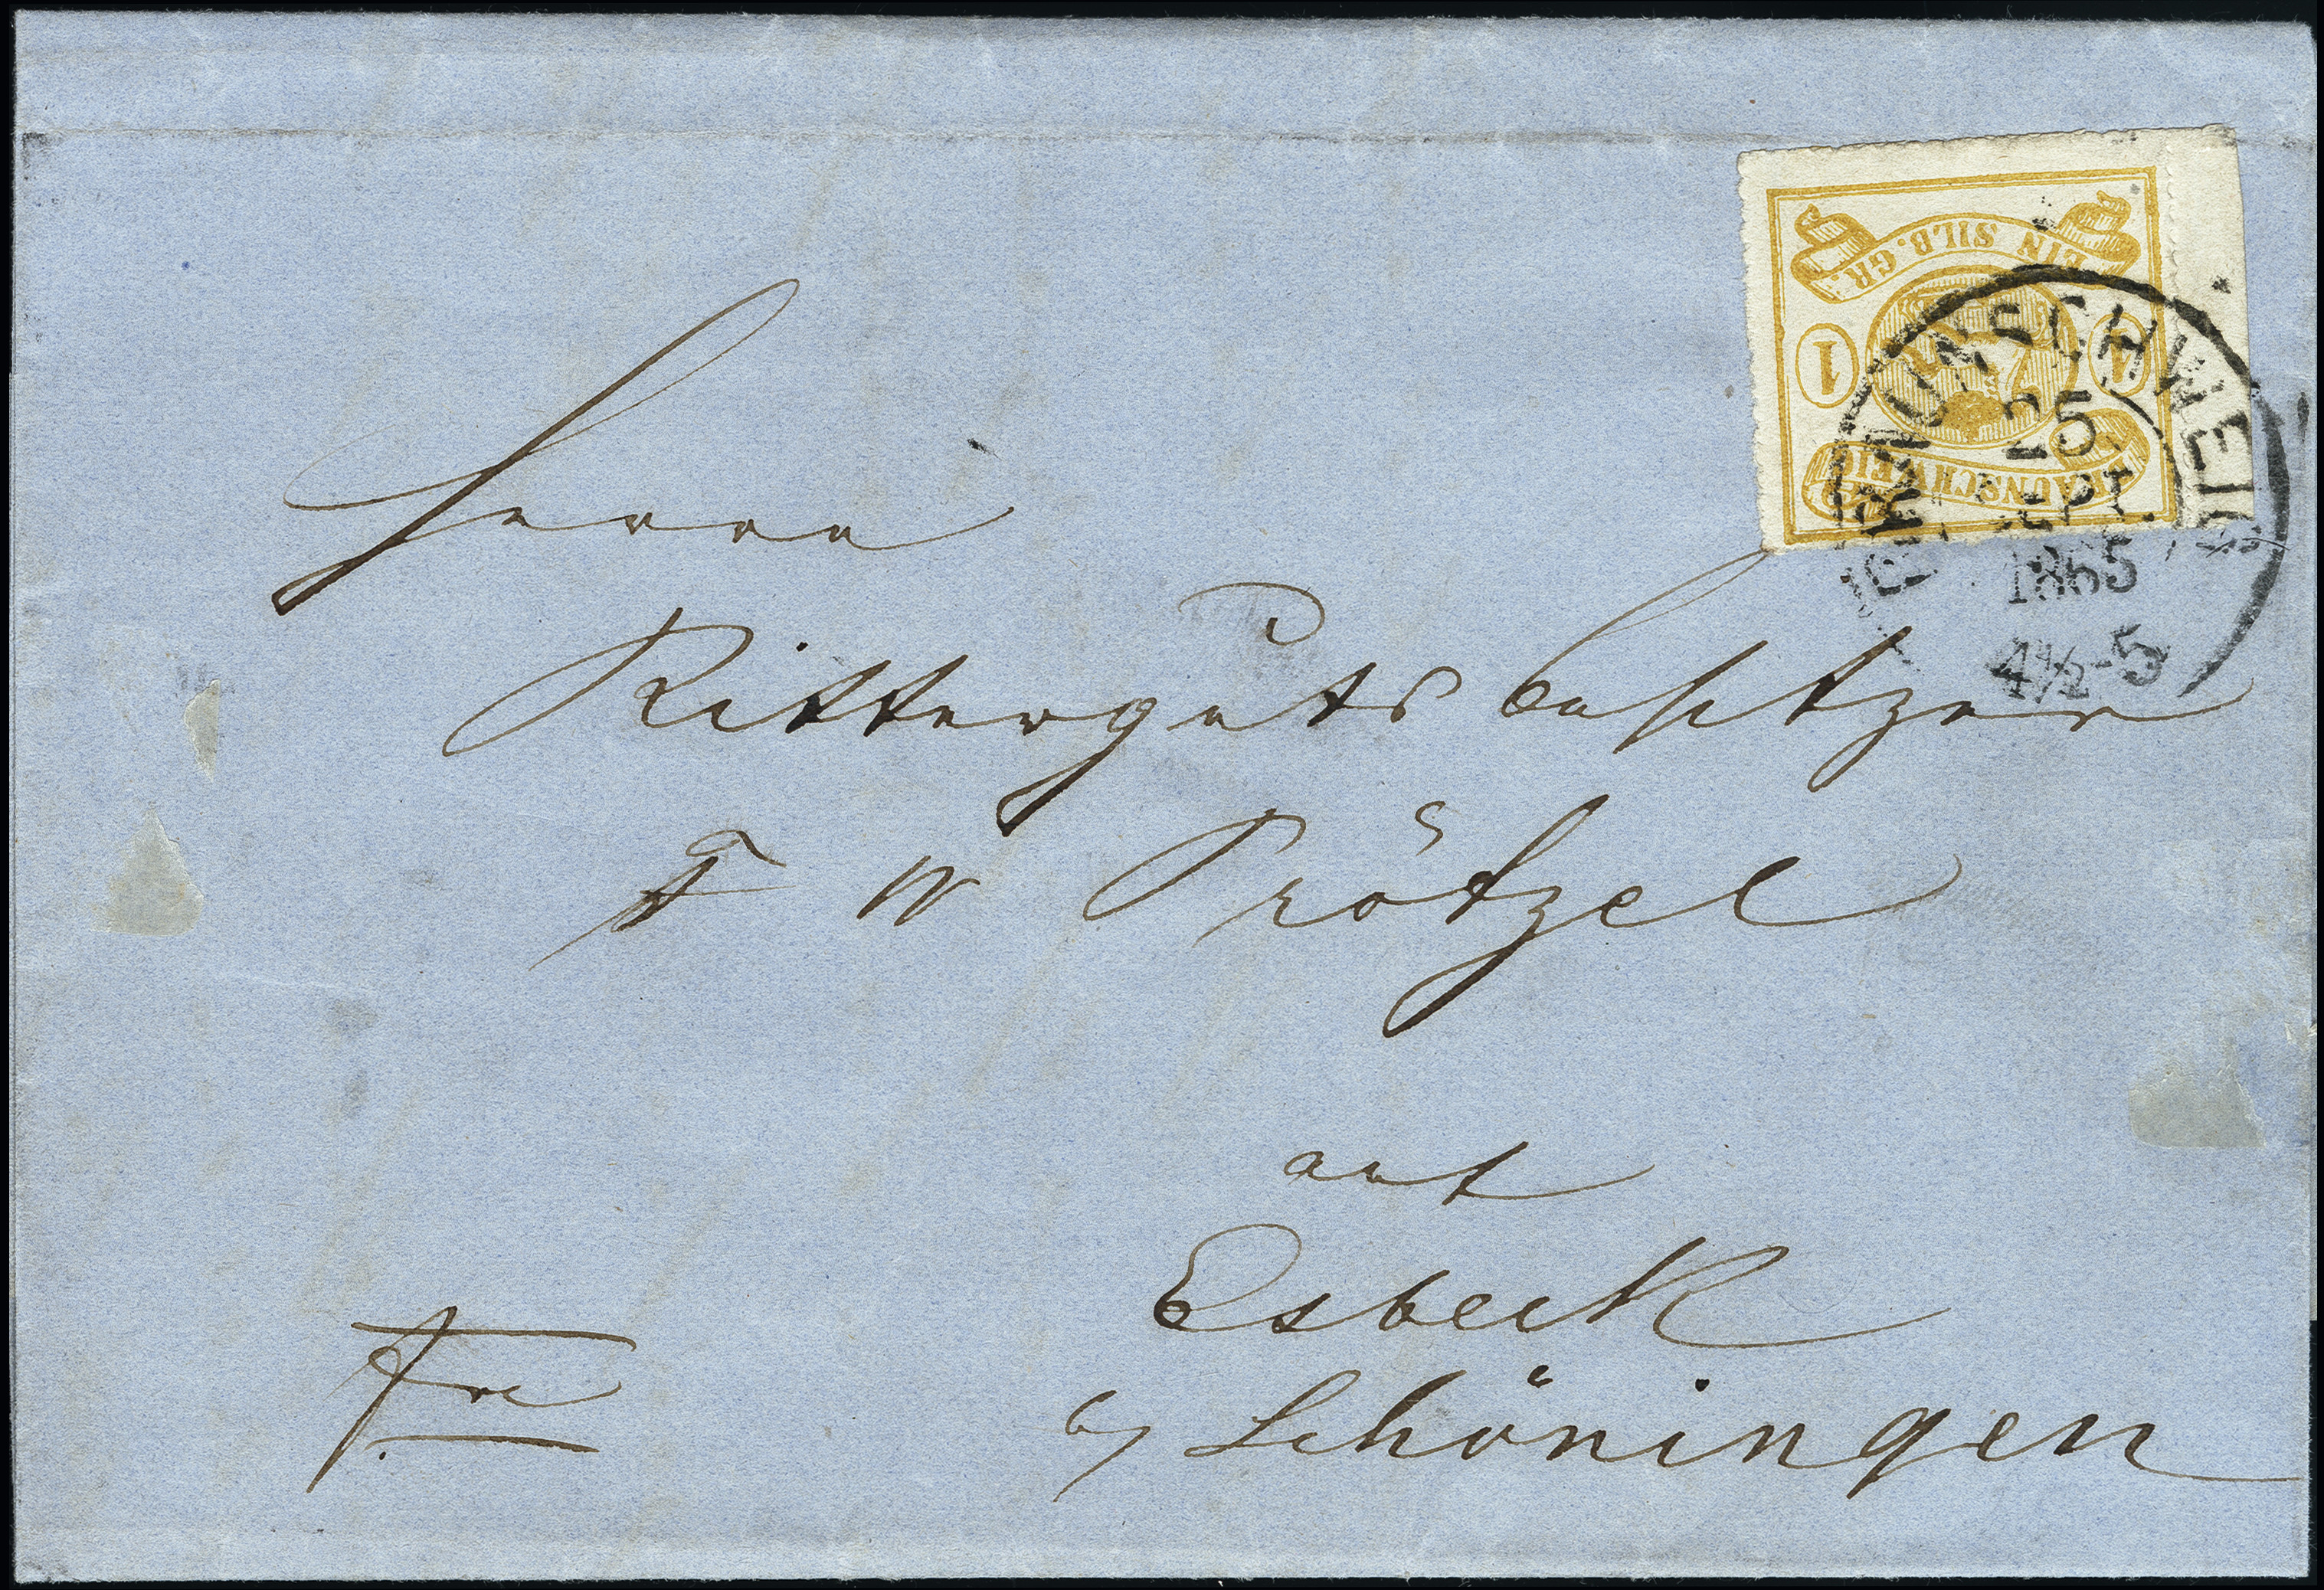 EIN SILB. GR.
1 1
BRAUNSCHWEIG
BRAUNSCHWEIG
25
SEPT.
1865
4½-5
Herrn
Rittergutsbesitzer
F W Prötzel
auf
Esbeck
b/ Schöningen
fr